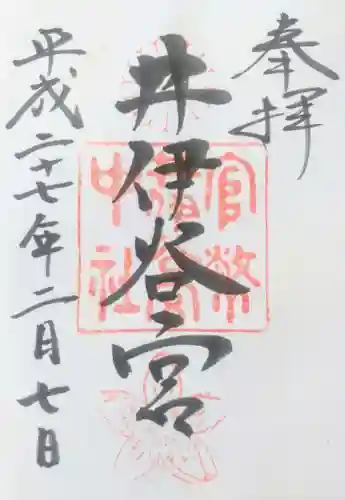 奉拝
井伊谷宮
平成二十七年二月七日
官幣
中社